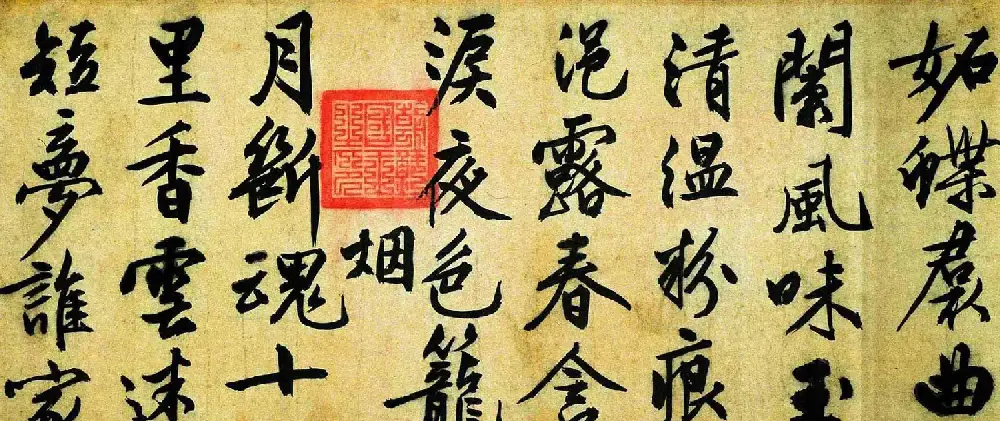 妬蝶裠曲
闌風味玉
清温粉痕
浥露春含
淚夜色籠
烟
月斷魂十
里香雲迷
短夢誰家